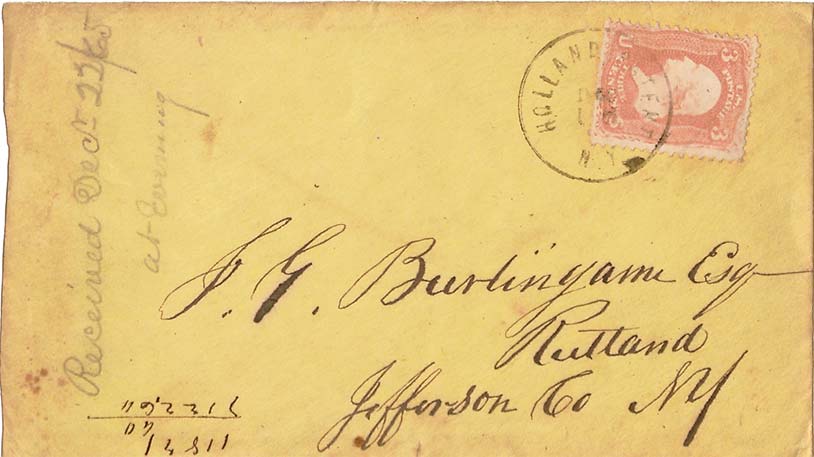 Received Dec 22/65
at Evening
HOLLAND PATENT
N.Y.
U.S. POSTAGE
THREE CENTS
3
3
J. G. Burlingame Esq
Rutland
Jefferson Co NY